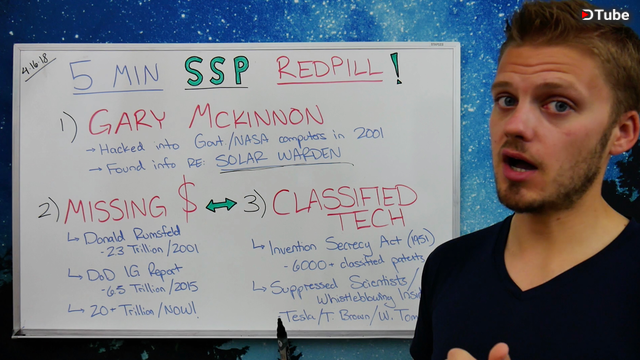 DTube
4.16.18
5 MIN SSP REDPILL!
1) GARY MCKINNON
→ Hacked into Govt/NASA computers in 2001
→ Found info RE: SOLAR WARDEN
2) MISSING $ ↔ 3) CLASSIFIED TECH
↳ Donald Rumsfeld
- 2.3 Trillion/2001
↳ DoD IG Report
- 6.5 Trillion/2015
↳ 20+ Trillion/NOW!
↳ Invention Secrecy Act (1951)
- 6000+ classified patents
↳ Suppressed Scientists/
Whistleblowing
Tesla/T. Brown/W. Tom